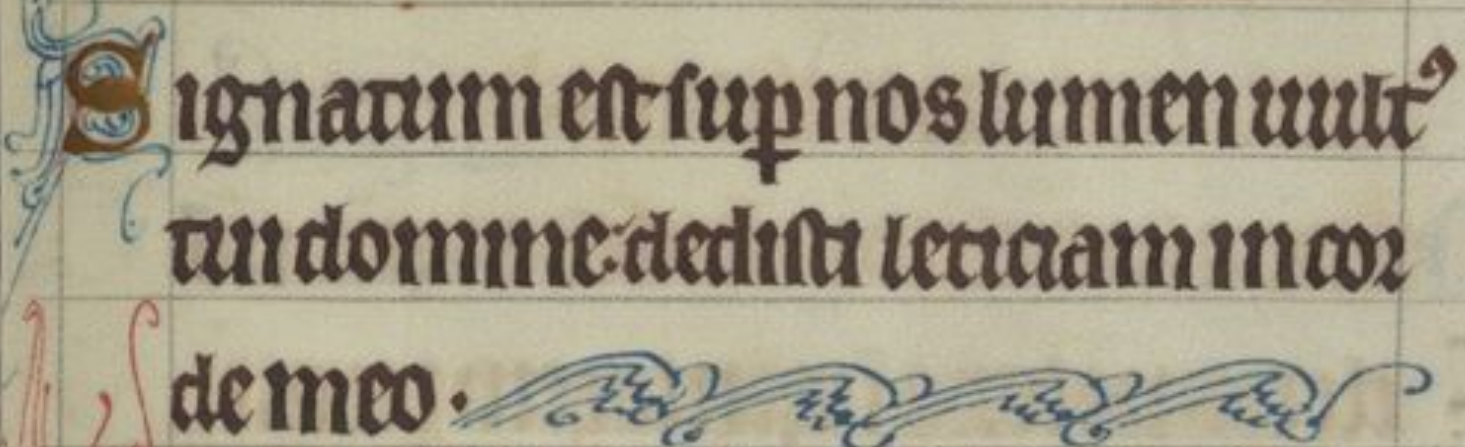 Signatum est sup nos lumen uultꝰ
tui domine: dedisti leticiam in cor
de meo.